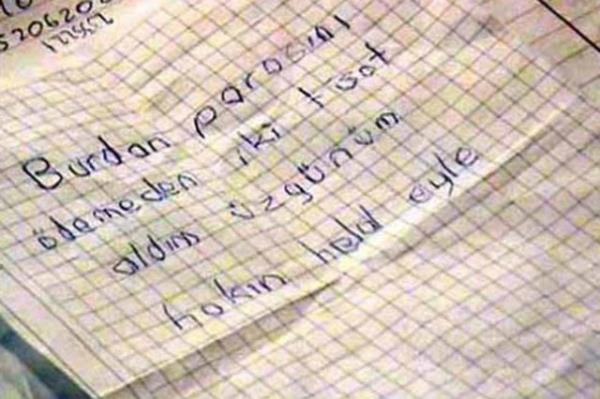 Burdan parasını
ödemeden iki tişot
aldım üzgünüm
hakın helal eyle